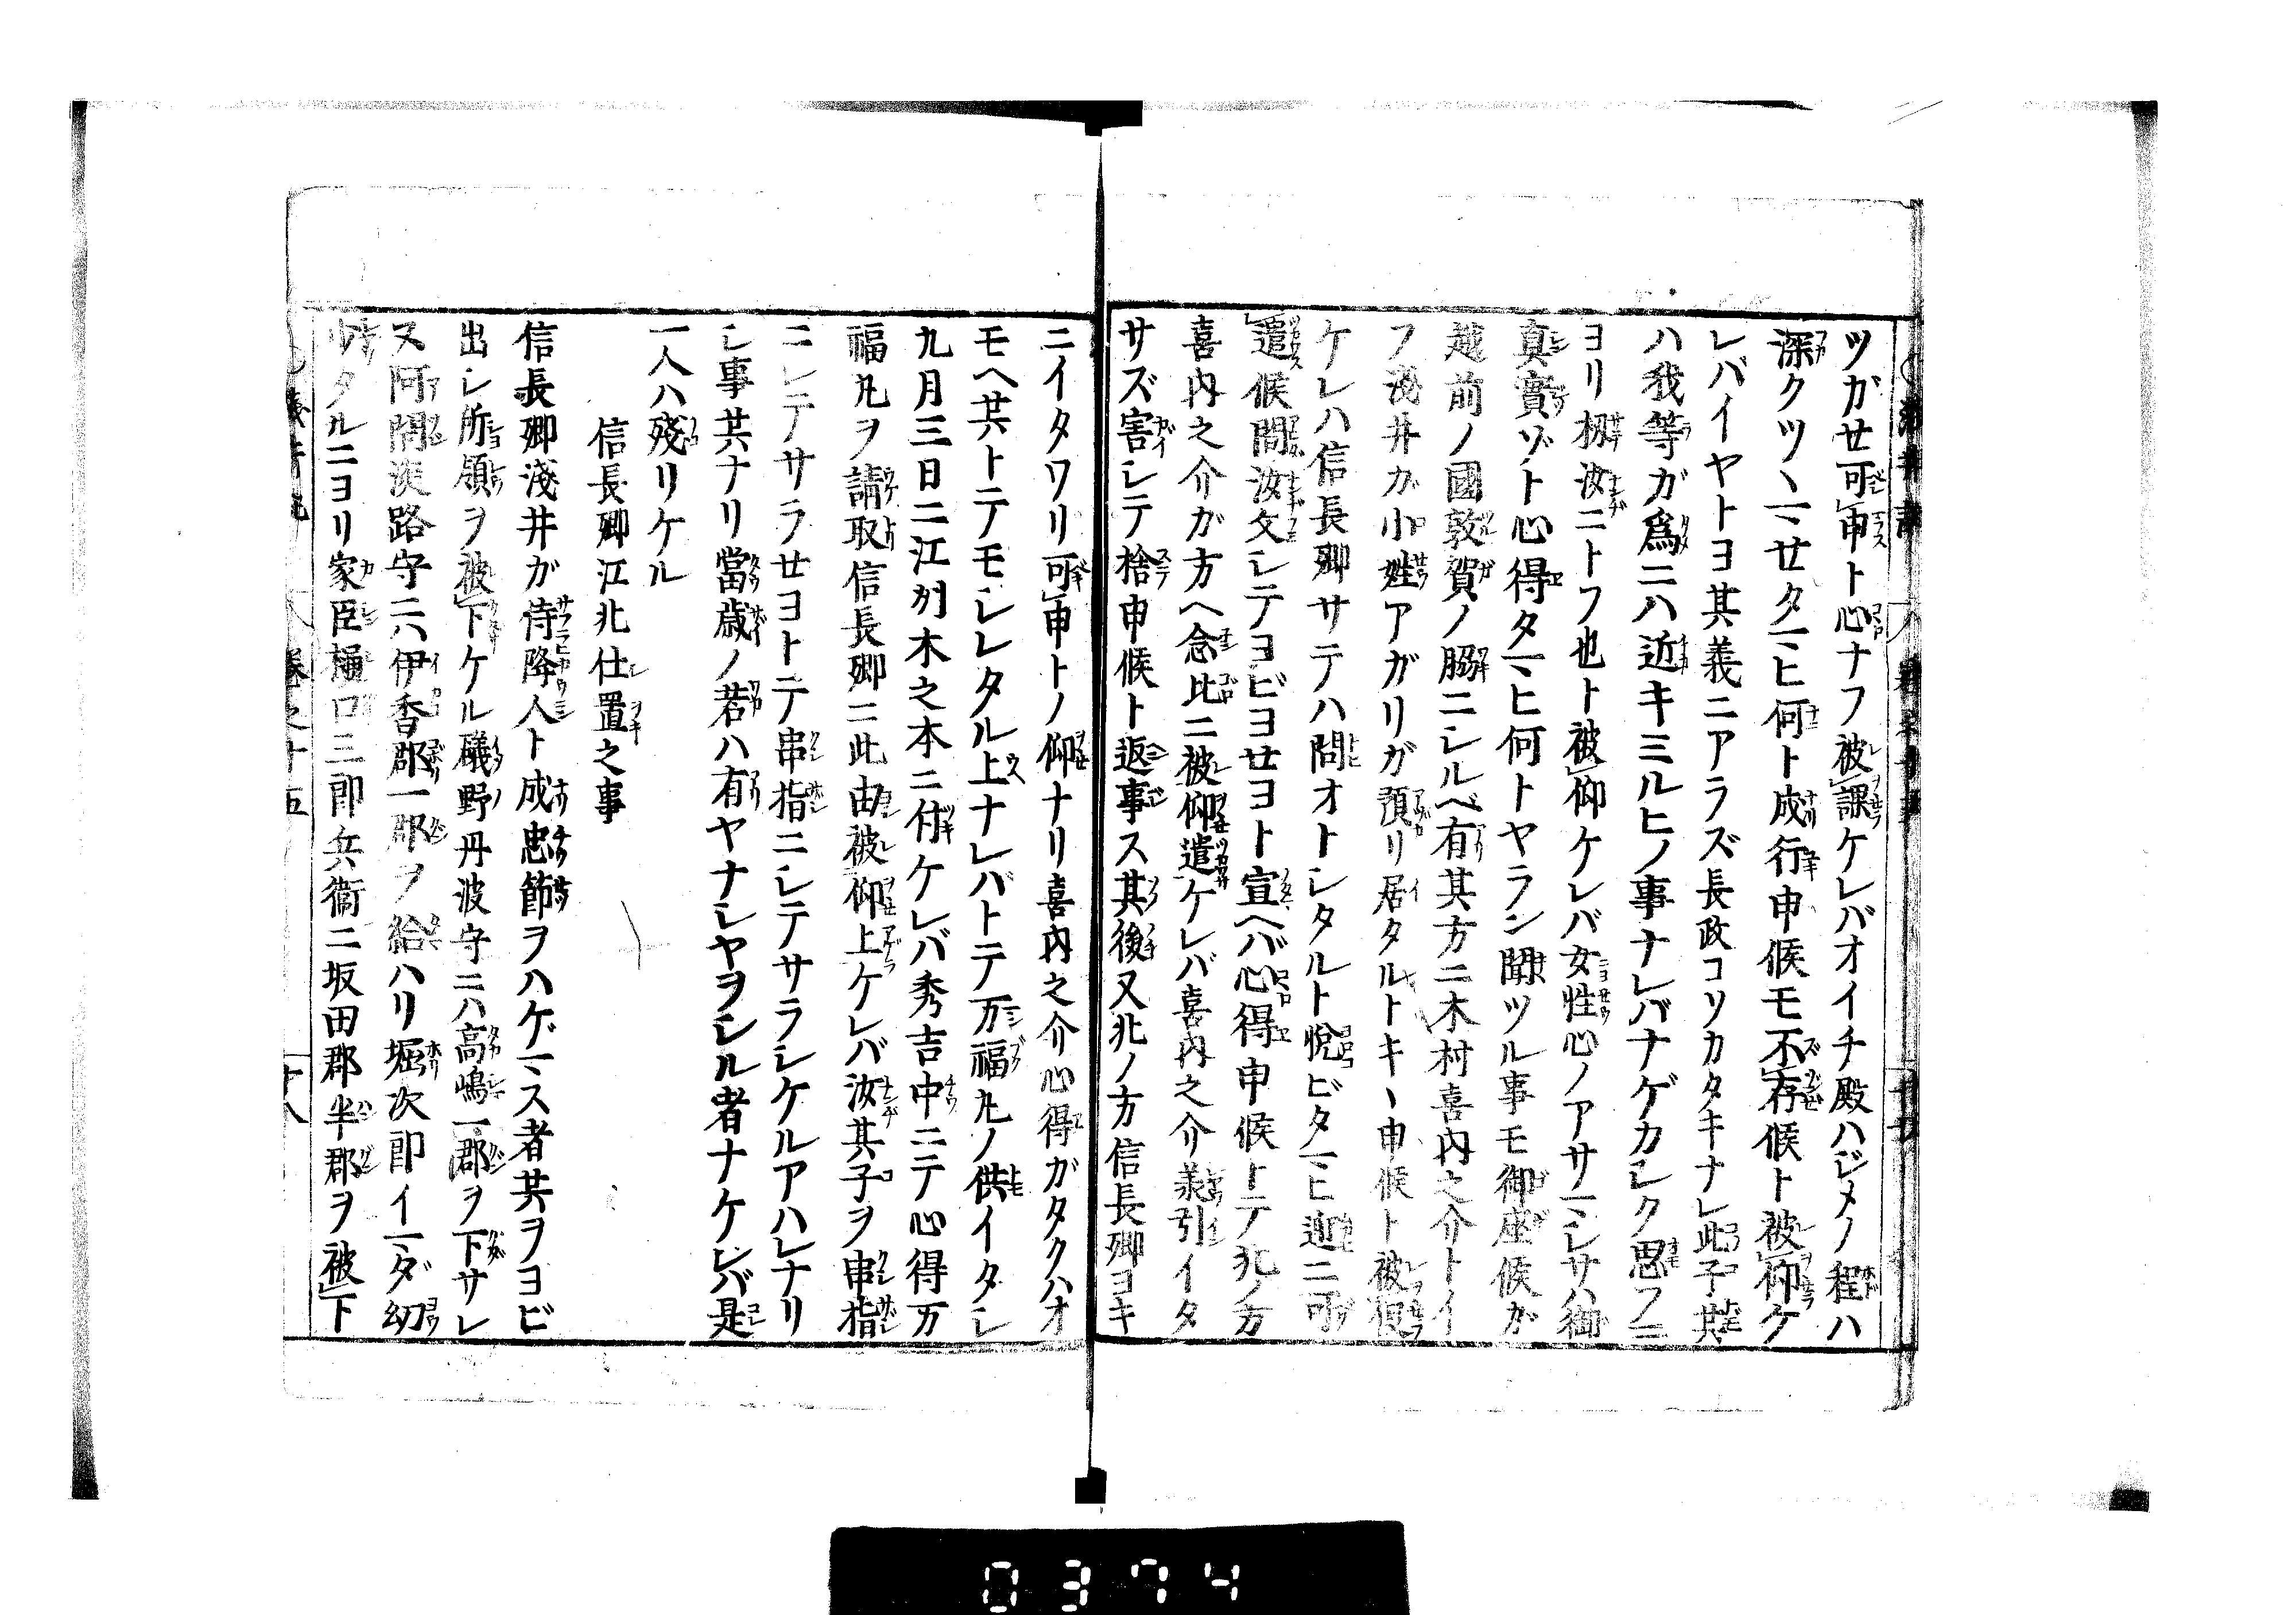 ツガせ可申ト心ナフ被課ケレバオイチ殿ハジメノ程ハ
深クツヽマせタマヒ何ト成行申候モ不存候ト被仰ケ
レバイヤトヨ其義ニアラズ長政コソカタキナレ此子共
ハ我等ガ爲ニハ近キミルヒノ事ナレバナゲカシク思フニ
ヨリ扨汝ニトフ也ト被仰ケレバ女性心ノアサマシサハ御
真實ゾト心得タマヒ何トヤラン聞ツル事モ御座候ガ
越前ノ國敦賀ノ脇ニシルベ有其方ニ木村喜内之介トイ
フ淺井ガ小姓アガリガ預リ居タルトキヽ申候ト被
ケレハ信長卿サテハ問オトシタルト悦ビタマヒ迎ニ可
遣候間汝文シテヨビヨせヨト宣ヘバ心得申候トテ北ノ方
喜内之介ガ方ヘ念比ニ被仰遣ケレバ喜内之介義引イタ
サズ害シテ捨申候ト返事ス其後又北ノ方信長卿ヨキ
ニイタワリ可申トノ仰ナリ喜内之介心得ガタクハオ
モヘ共トテモシレタル上ナレバトテ万福丸ノ供イタシ
九月三日ニ江州木之本ニ付ケレバ秀吉中ニテ心得万
福丸ヲ請取信長卿ニ此由被仰上ケレバ汝其子ヲ串指
ニシテサラせヨトテ串指ニシテサラシケルアハレナリ
シ事共ナリ當歳ノ若ハ有ヤナシヤヲシル者ナケレバ是
一人ハ殘リケル
信長卿江北仕置之事
信長卿淺井ガ侍降人ト成忠節ヲハゲマス者共ヲヨビ
出シ所領ヲ被下ケル礒野丹波守ニハ高嶋一郡ヲ下サレ
又阿閉淡路守ニハ伊香郡一郡ヲ給ハリ堀次郎イマダ幼
少タルニヨリ家臣樋口三郎兵衞ニ坂田郡半郡ヲ被下
巻之十五
十八
0374